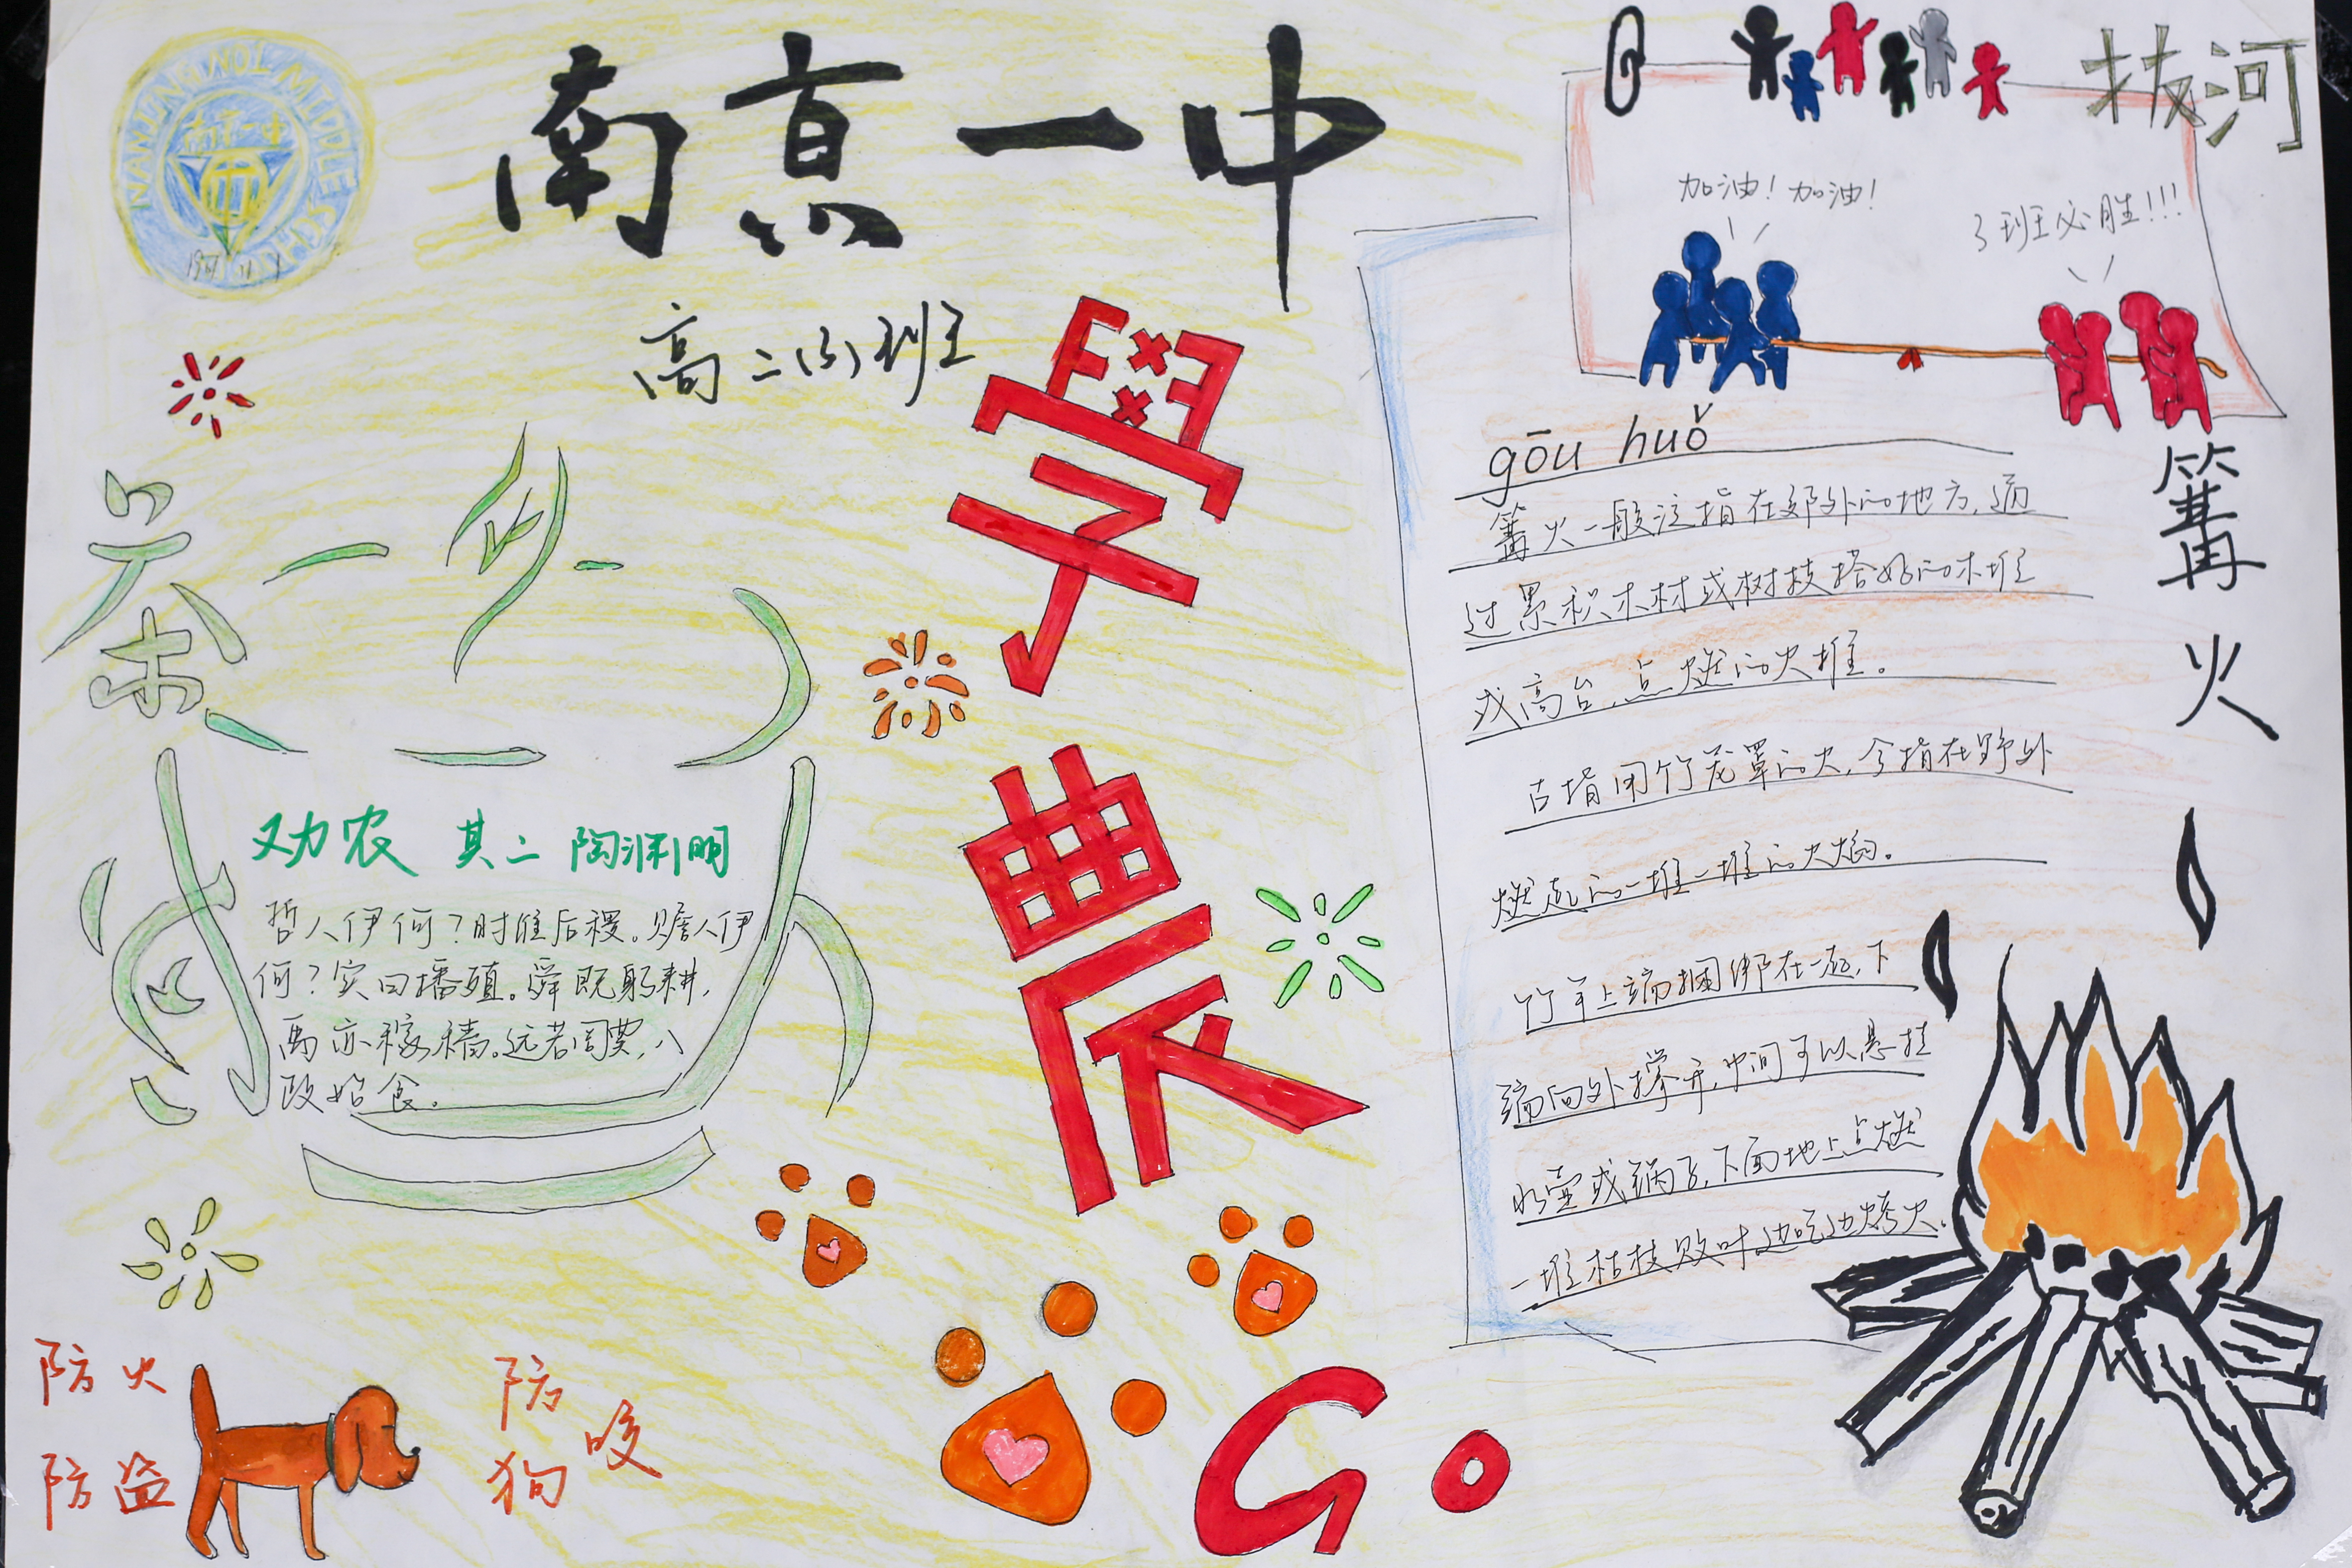 NANJING NO.1 MIDDLE SCHOOL
南京一中
南京一中
高二(3)班
學農
Go
茶
劝农 其二 陶渊明
哲人伊何？时惟后稷。赡人伊
何？实曰播殖。舜既躬耕，
禹亦稼穑。远若周典，八
政始食。
防火
防盗
防
狗咬
拔河
加油！加油！
3班必胜！！！
篝火
gōu huǒ
篝火一般泛指在郊外的地方，通
过累积木材或树枝搭好的木堆
或高台，点燃的火堆。
古指用竹笼罩的火，今指在野外
燃点的一堆一堆的火焰。
竹竿上端捆绑在一起，下
端向外撑开，中间可以悬挂
水壶或锅子，下面地上点燃
一堆枯枝败叶边吃边烤火。